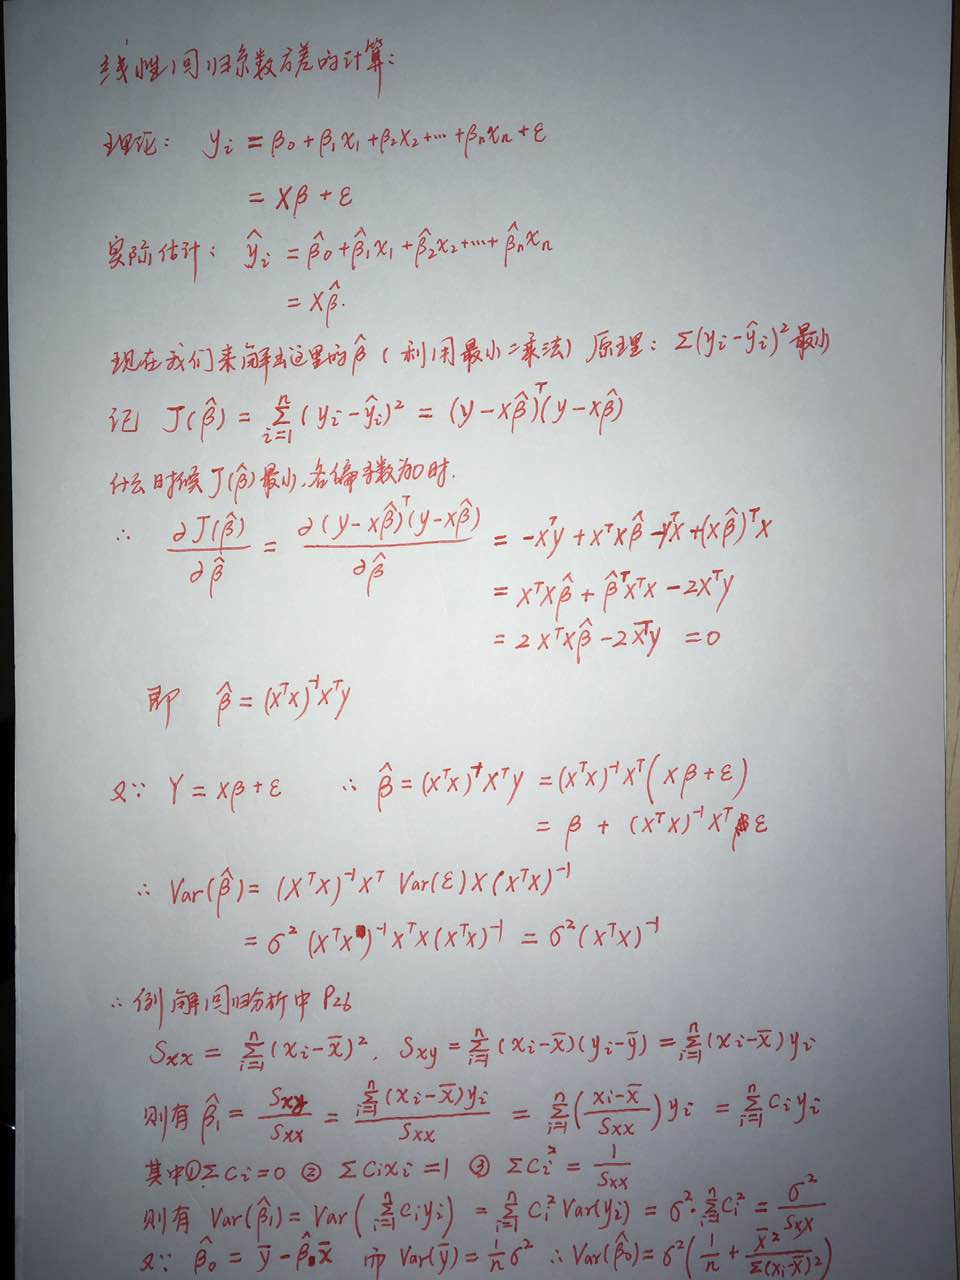 线性回归系数方差的计算:
理论: yi = β0+β1x1+β2x2+…+βnxn+ε
= Xβ+ε
实际估计: ŷi = β̂0+β̂1x1+β̂2x2+…+β̂nxn
= Xβ̂.
现在我们来解出这里的β̂ (利用最小二乘法) 原理: Σ(yi-ŷi)² 最小
记 J(β̂) = Σ_{i=1}^{n} (yi-ŷi)² = (y-Xβ̂)ᵀ(y-Xβ̂)
什么时候J(β̂)最小,各偏导数为0时.
∴ ∂J(β̂)/∂β̂ = ∂(y-Xβ̂)ᵀ(y-Xβ̂)/∂β̂ = -Xᵀy + XᵀXβ̂ - yᵀX + (Xβ̂)ᵀX
= XᵀXβ̂ + β̂ᵀXᵀX - 2Xᵀy
= 2XᵀXβ̂ - 2Xᵀy = 0
即 β̂ = (XᵀX)⁻¹Xᵀy
又∵ Y = Xβ+ε ∴ β̂ = (XᵀX)⁻¹Xᵀy = (XᵀX)⁻¹Xᵀ(Xβ+ε)
= β + (XᵀX)⁻¹Xᵀε
∴ Var(β̂) = (XᵀX)⁻¹Xᵀ Var(ε)X(XᵀX)⁻¹
= σ²(XᵀX)⁻¹XᵀX(XᵀX)⁻¹ = σ²(XᵀX)⁻¹
∴ 例解回归分析中 P26
Sxx = Σ_{i=1}^{n} (xi-x̄)², Sxy = Σ_{i=1}^{n} (xi-x̄)(yi-ȳ) = Σ_{i=1}^{n} (xi-x̄)yi
则有 β̂1 = Sxy/Sxx = Σ_{i=1}^{n} (xi-x̄)yi/Sxx = Σ_{i=1}^{n} ((xi-x̄)/Sxx) yi = Σ_{i=1}^{n} ciyi
其中①Σci=0 ② Σcixi=1 ③ Σci² = 1/Sxx
则有 Var(β̂1) = Var(Σ_{i=1}^{n} ciyi) = Σ_{i=1}^{n} ci² Var(yi) = σ²·Σ_{i=1}^{n} ci² = σ²/Sxx
又∵ β̂0 = ȳ - β̂1x̄ 而 Var(ȳ) = 1/n σ² ∴ Var(β̂0) = σ²(1/n + x̄²/Σ(xi-x̄)²)